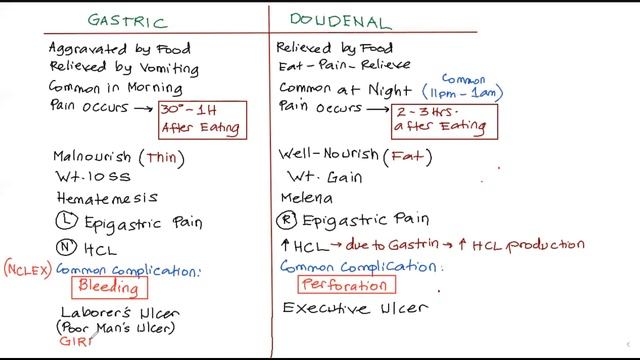 GASTRIC
Aggravated by Food
Relieved by Vomiting
Common in Morning
Pain occurs → 30" - 1H
After Eating
Malnourish (Thin)
Wt. loss
Hematemesis
(L) Epigastric Pain
(N) HCL
(NCLEX) Common Complication:
Bleeding
Laborer's Ulcer
(Poor Man's Ulcer)
GIRL
DOUDENAL
Relieved by Food
Eat-Pain-Relieve
Common at Night (Common 11pm-1am)
Pain occurs → 2-3 Hrs.
after Eating
Well-Nourish (Fat)
Wt. Gain
Melena
(R) Epigastric Pain
↑ HCL → due to Gastrin → ↑ HCL production
Common Complication:
Perforation
Executive Ulcer